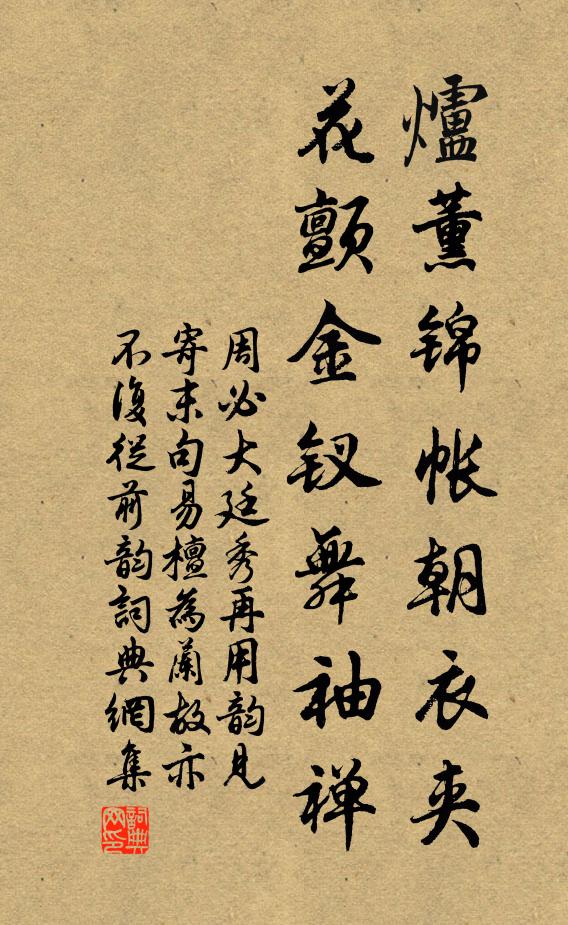 爐薰锦帐朝衣夹
花颤金钗舞袖禅
周必大廷秀再用韵见
寄末句易檀為蘭故亦
不復從前韵詞典網集
詞典网印